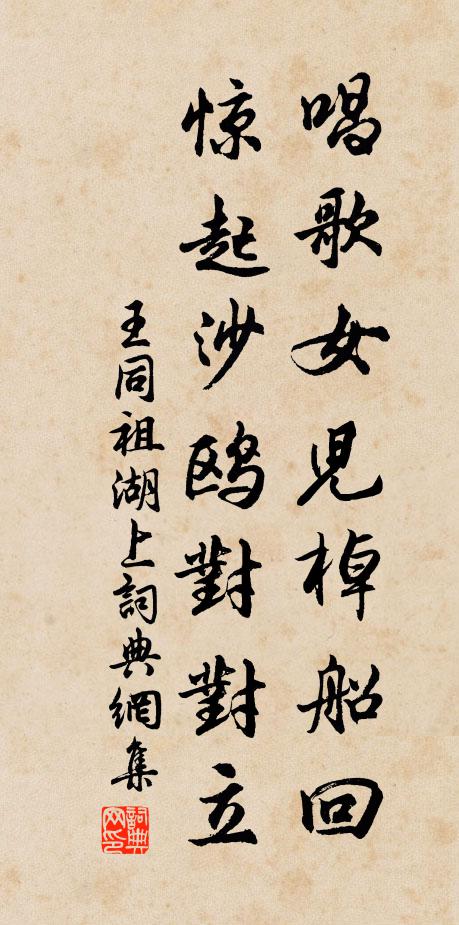 唱歌女児棹船回
惊起沙鸥對對立
王同祖湖上詞典網集
詞典網印